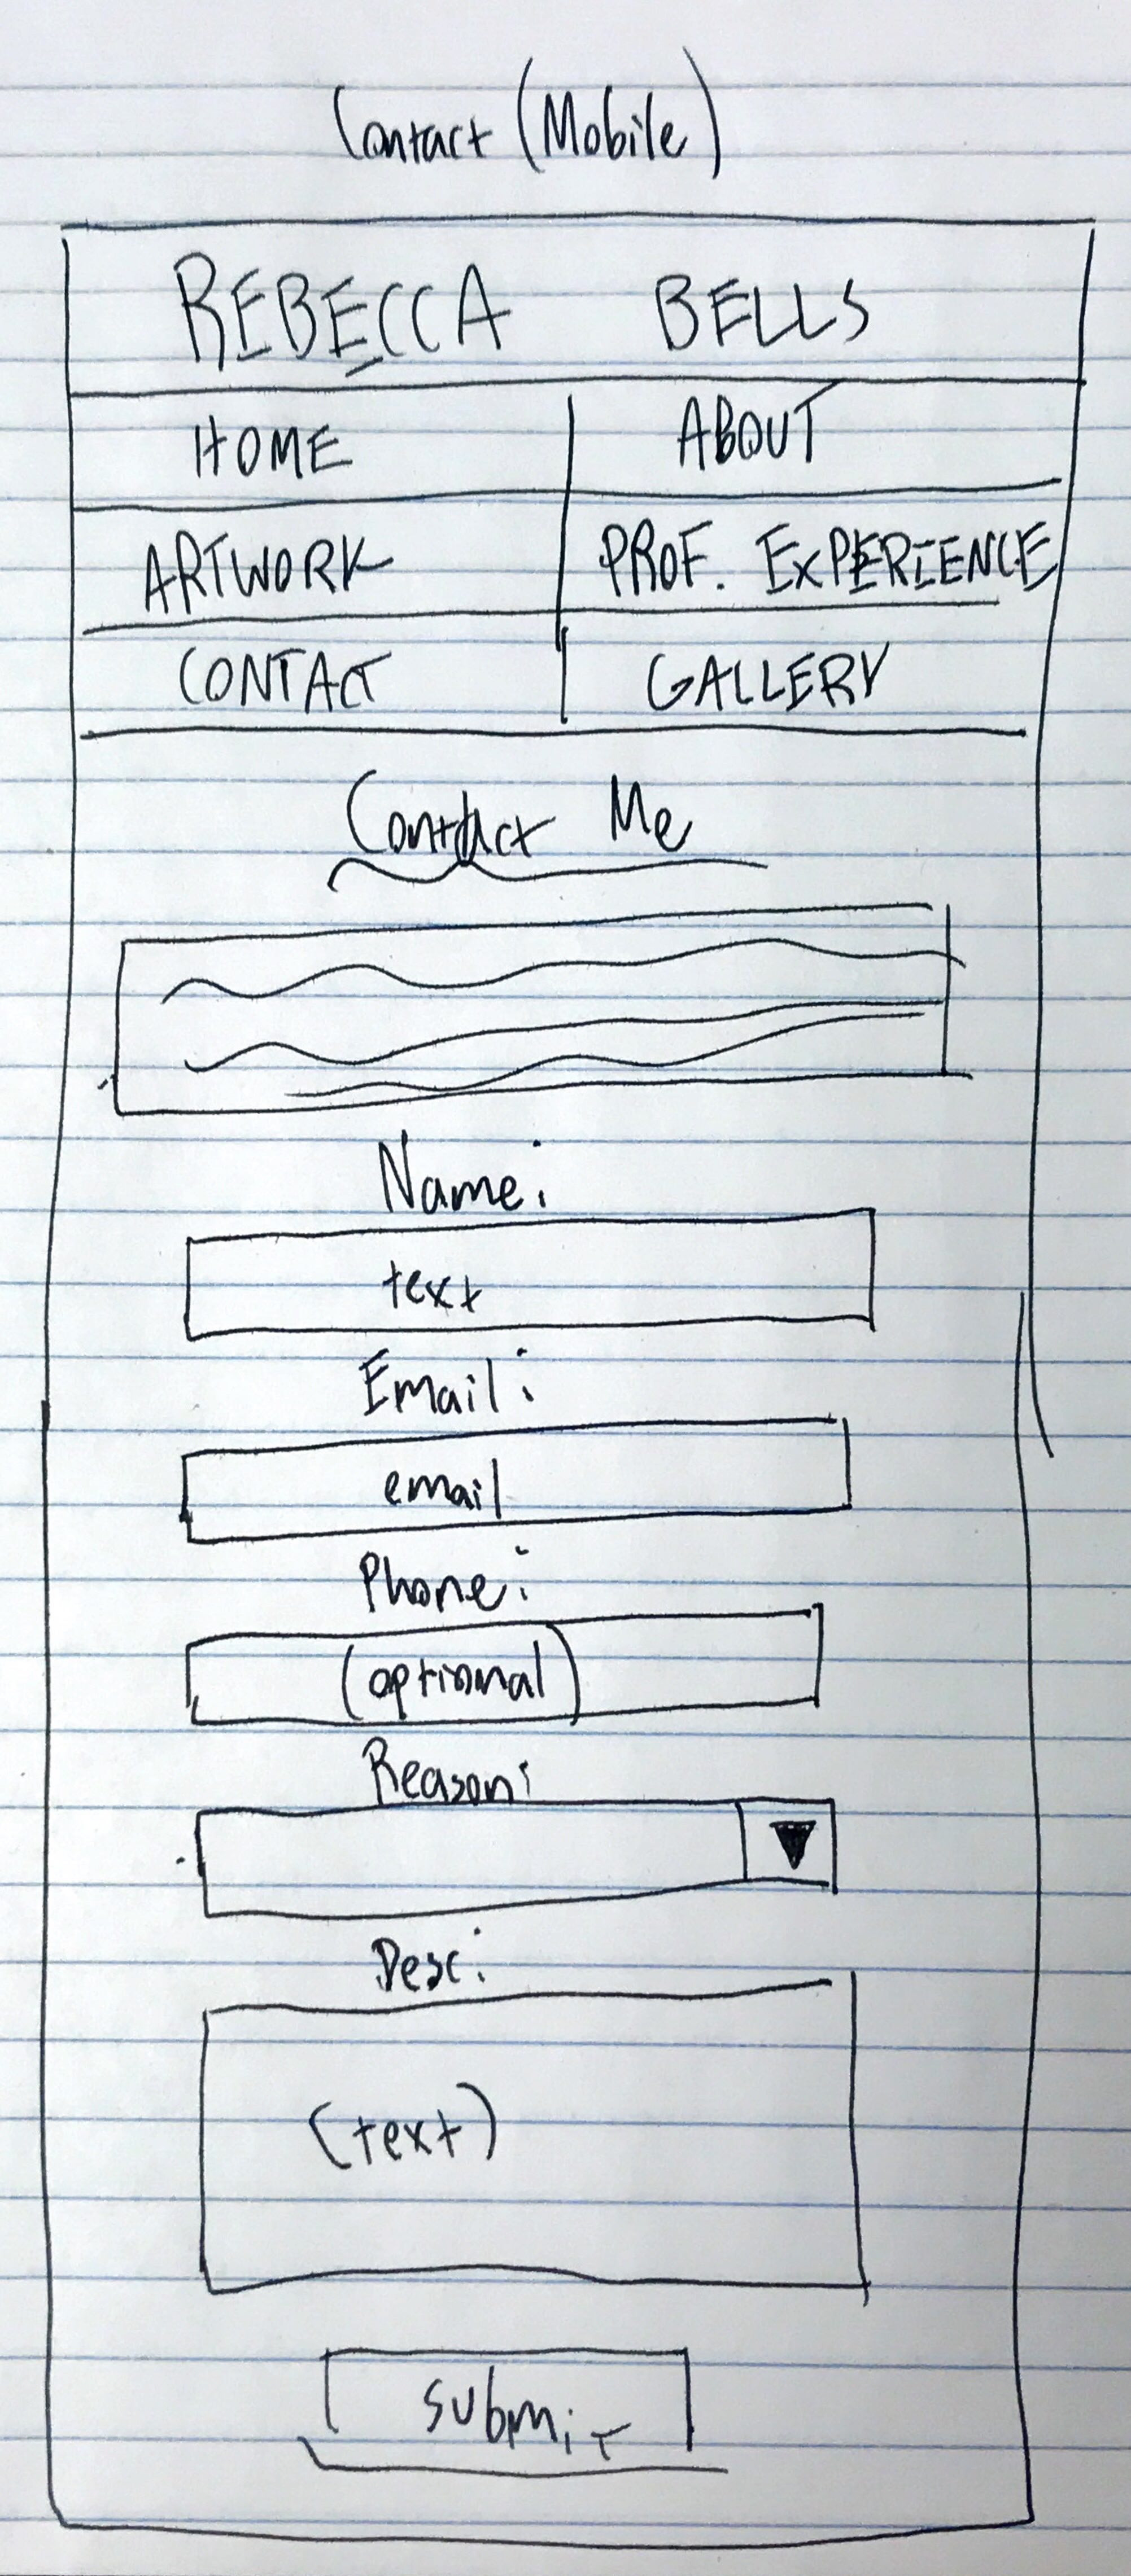 Contact (Mobile)
REBECCA BELLS
HOME ABOUT
ARTWORK PROF. EXPERIENCE
CONTACT GALLERY
Contact Me
Name:
text
Email:
email
Phone:
(optional)
Reason:
Desc:
(text)
submit